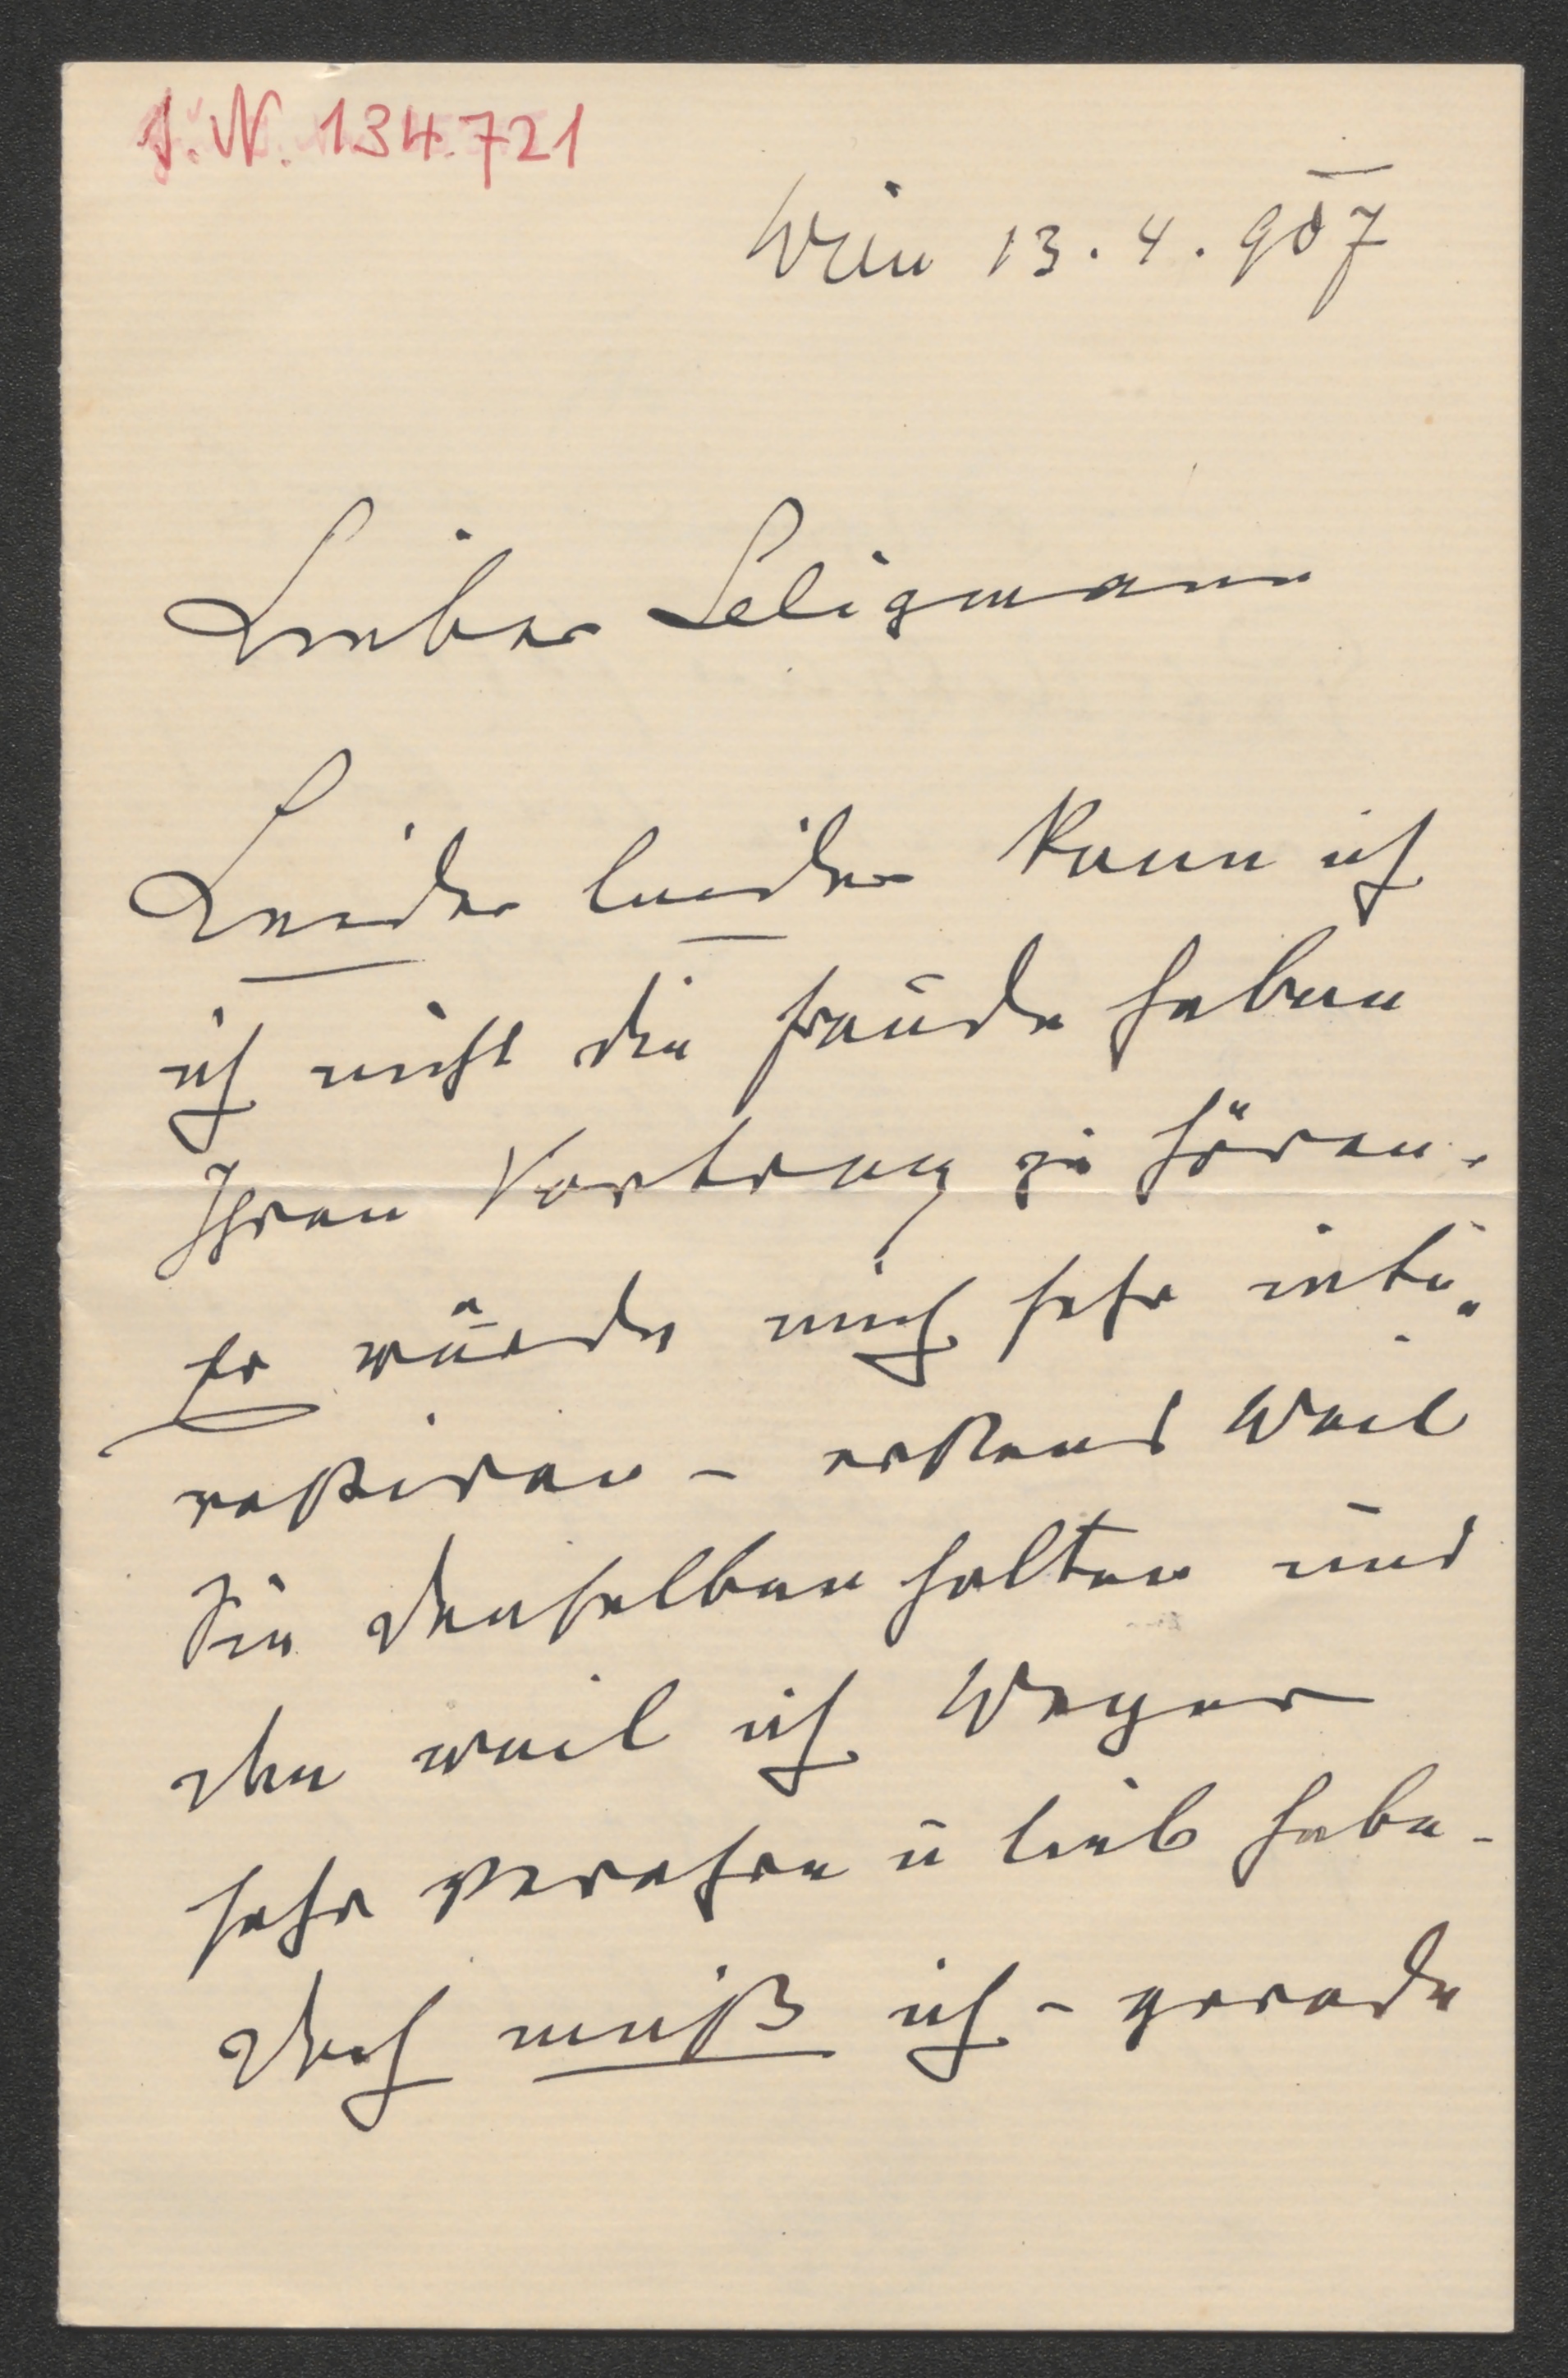 J.N. 134.721
Wien 13.4.907
Lieber Seligmann
Leider leider kann ich
ich nicht die Freude haben
Ihren Vortrag zu hören.
Er würde mich sehr inte-
ressiren – erstens weil
Sie denselben halten und
dann weil ich Weyer
sehr verehre u lieb habe –
Doch muß ich – gerade